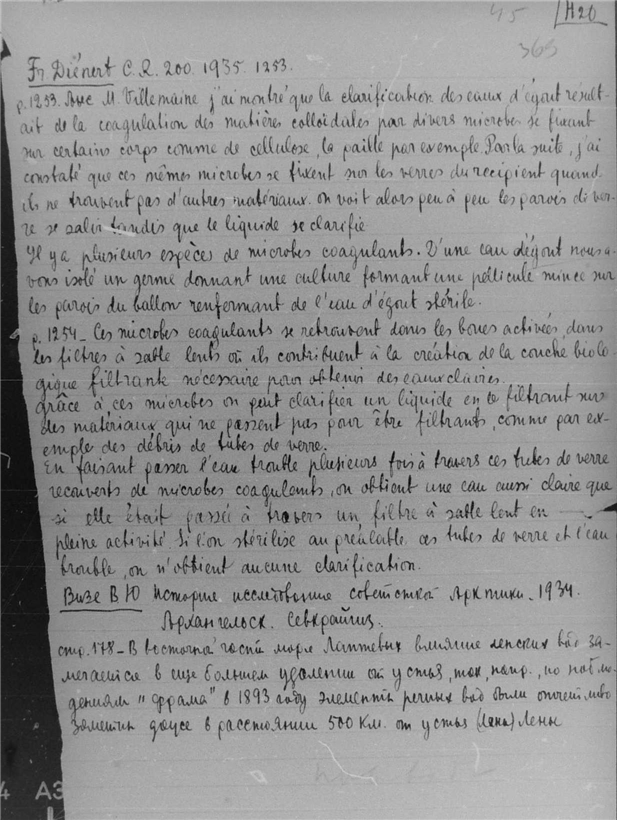 45 H20
369
Fr Diénert C.R. 200. 1935. 1253.
p. 1253. Avec M. Villemaine j'ai montré que la clarification des eaux d'égout résult-
ait de la coagulation des matières colloïdales par divers microbes se fixant
sur certains corps comme de cellulose, la paille par exemple. Par la suite, j'ai
constaté que ces mêmes microbes se fixent sur les verres du recipient quand
ils ne trouvent pas d'autres matériaux. on voit alors peu à peu les parois de ver-
re se salir tandis que le liquide se clarifie
Il y a plusieurs espèces de microbes coagulants. D'une eau d'égout nous a-
vons isolé un germe donnant une culture formant une pellicule mince sur
les parois du ballon renfermant de l'eau d'égout stérile.
p. 1254 - Les microbes coagulants se retrouvent dans les boues activées, dans
les filtres à sable lents où ils contribuent à la création de la couche biolo-
gique filtrante nécessaire pour obtenir des eaux claires.
grâce à ces microbes on peut clarifier un liquide en le filtrant sur
des matériaux qui ne passent pas pour être filtrants, comme par ex-
emple des débris de tubes de verre.
En faisant passer l'eau trouble plusieurs fois à travers ces tubes de verre
recouverts de microbes coagulants, on obtient une eau aussi claire que
si elle était passée à travers un filtre à sable lent en
pleine activité. Si l'on stérilise au préalable ces tubes de verre et l'eau
trouble, on n'obtient aucune clarification.
Визе В Ю История исследования советской Арктики. 1934.
Архангельск. Севкрайгиз.
стр. 178 - В восточной части моря Лаптевых влияние ленских вод за-
мечается в еще большем удалении от устья, так, напр., по наблю-
дениям "Фрама" в 1893 году элементы речных вод были отчетливо
заметны даже в расстоянии 500 км. от устья Лены
4 A3